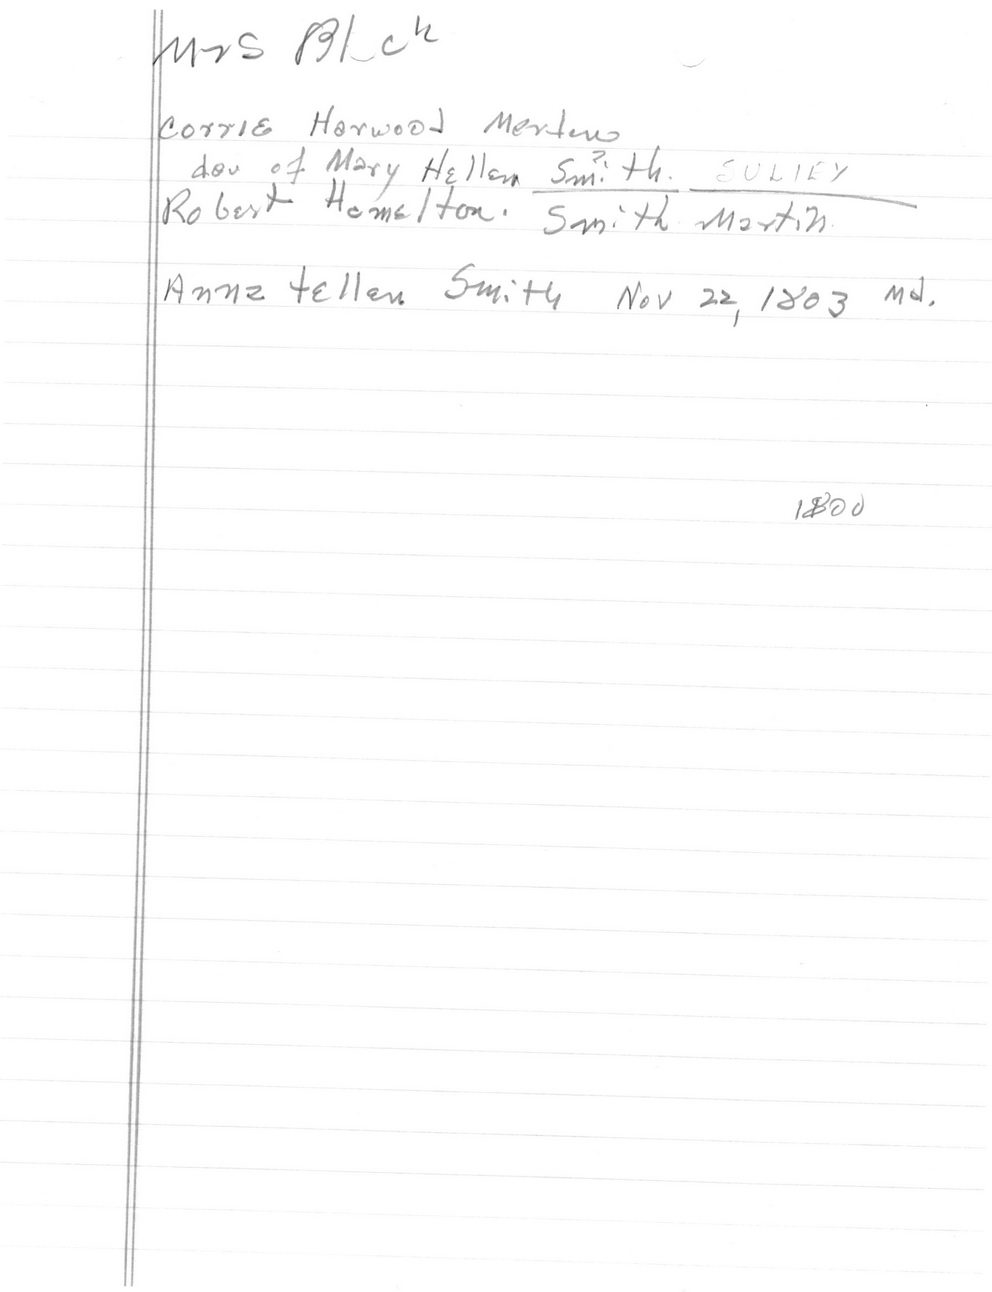 Mrs Blck
Corrie Harwood Merten
dau of Mary Hellen Smith. SULIEY
Robert Hamelton. Smith Martin
Anna Hellen Smith Nov 22, 1803 Md.
1800